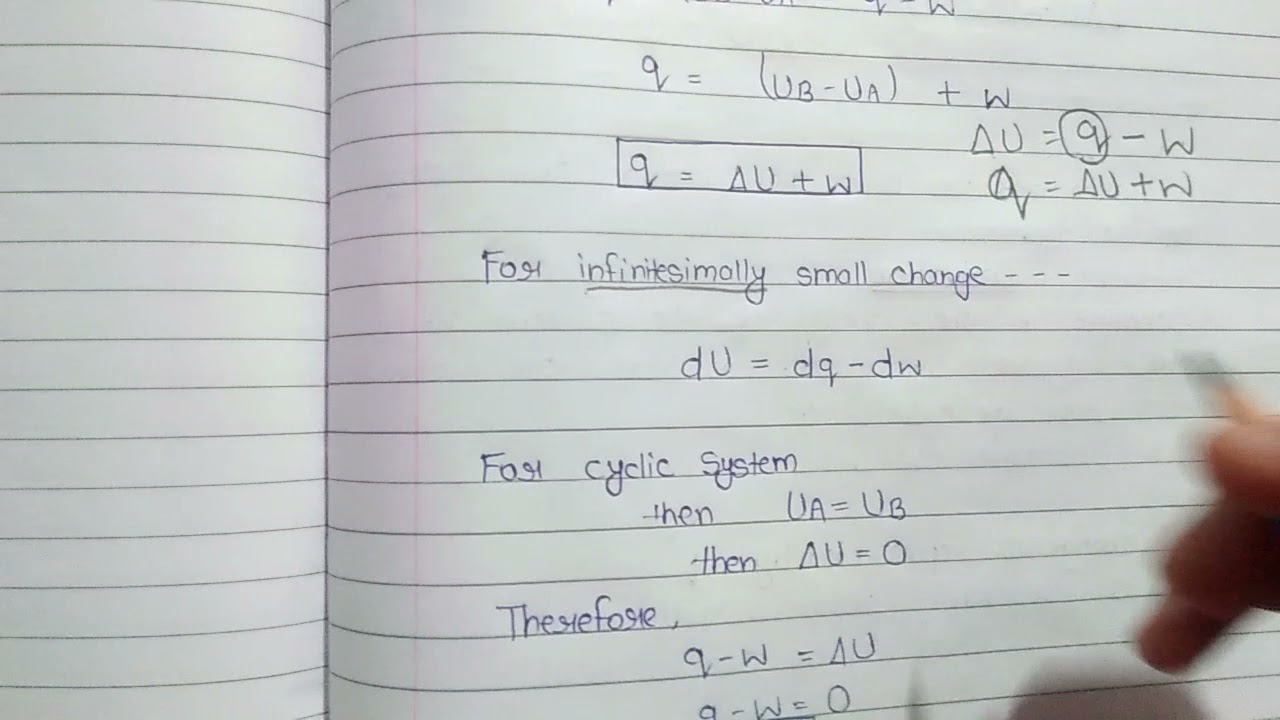 q - W
q = (UB - UA) + W
ΔU = q - W
q = ΔU + W
Q = ΔU + W
For infinitesimally small change - - -
dU = dq - dw
For cyclic System
then UA = UB
then ΔU = 0
Therefore,
q - W = ΔU
q - W = 0